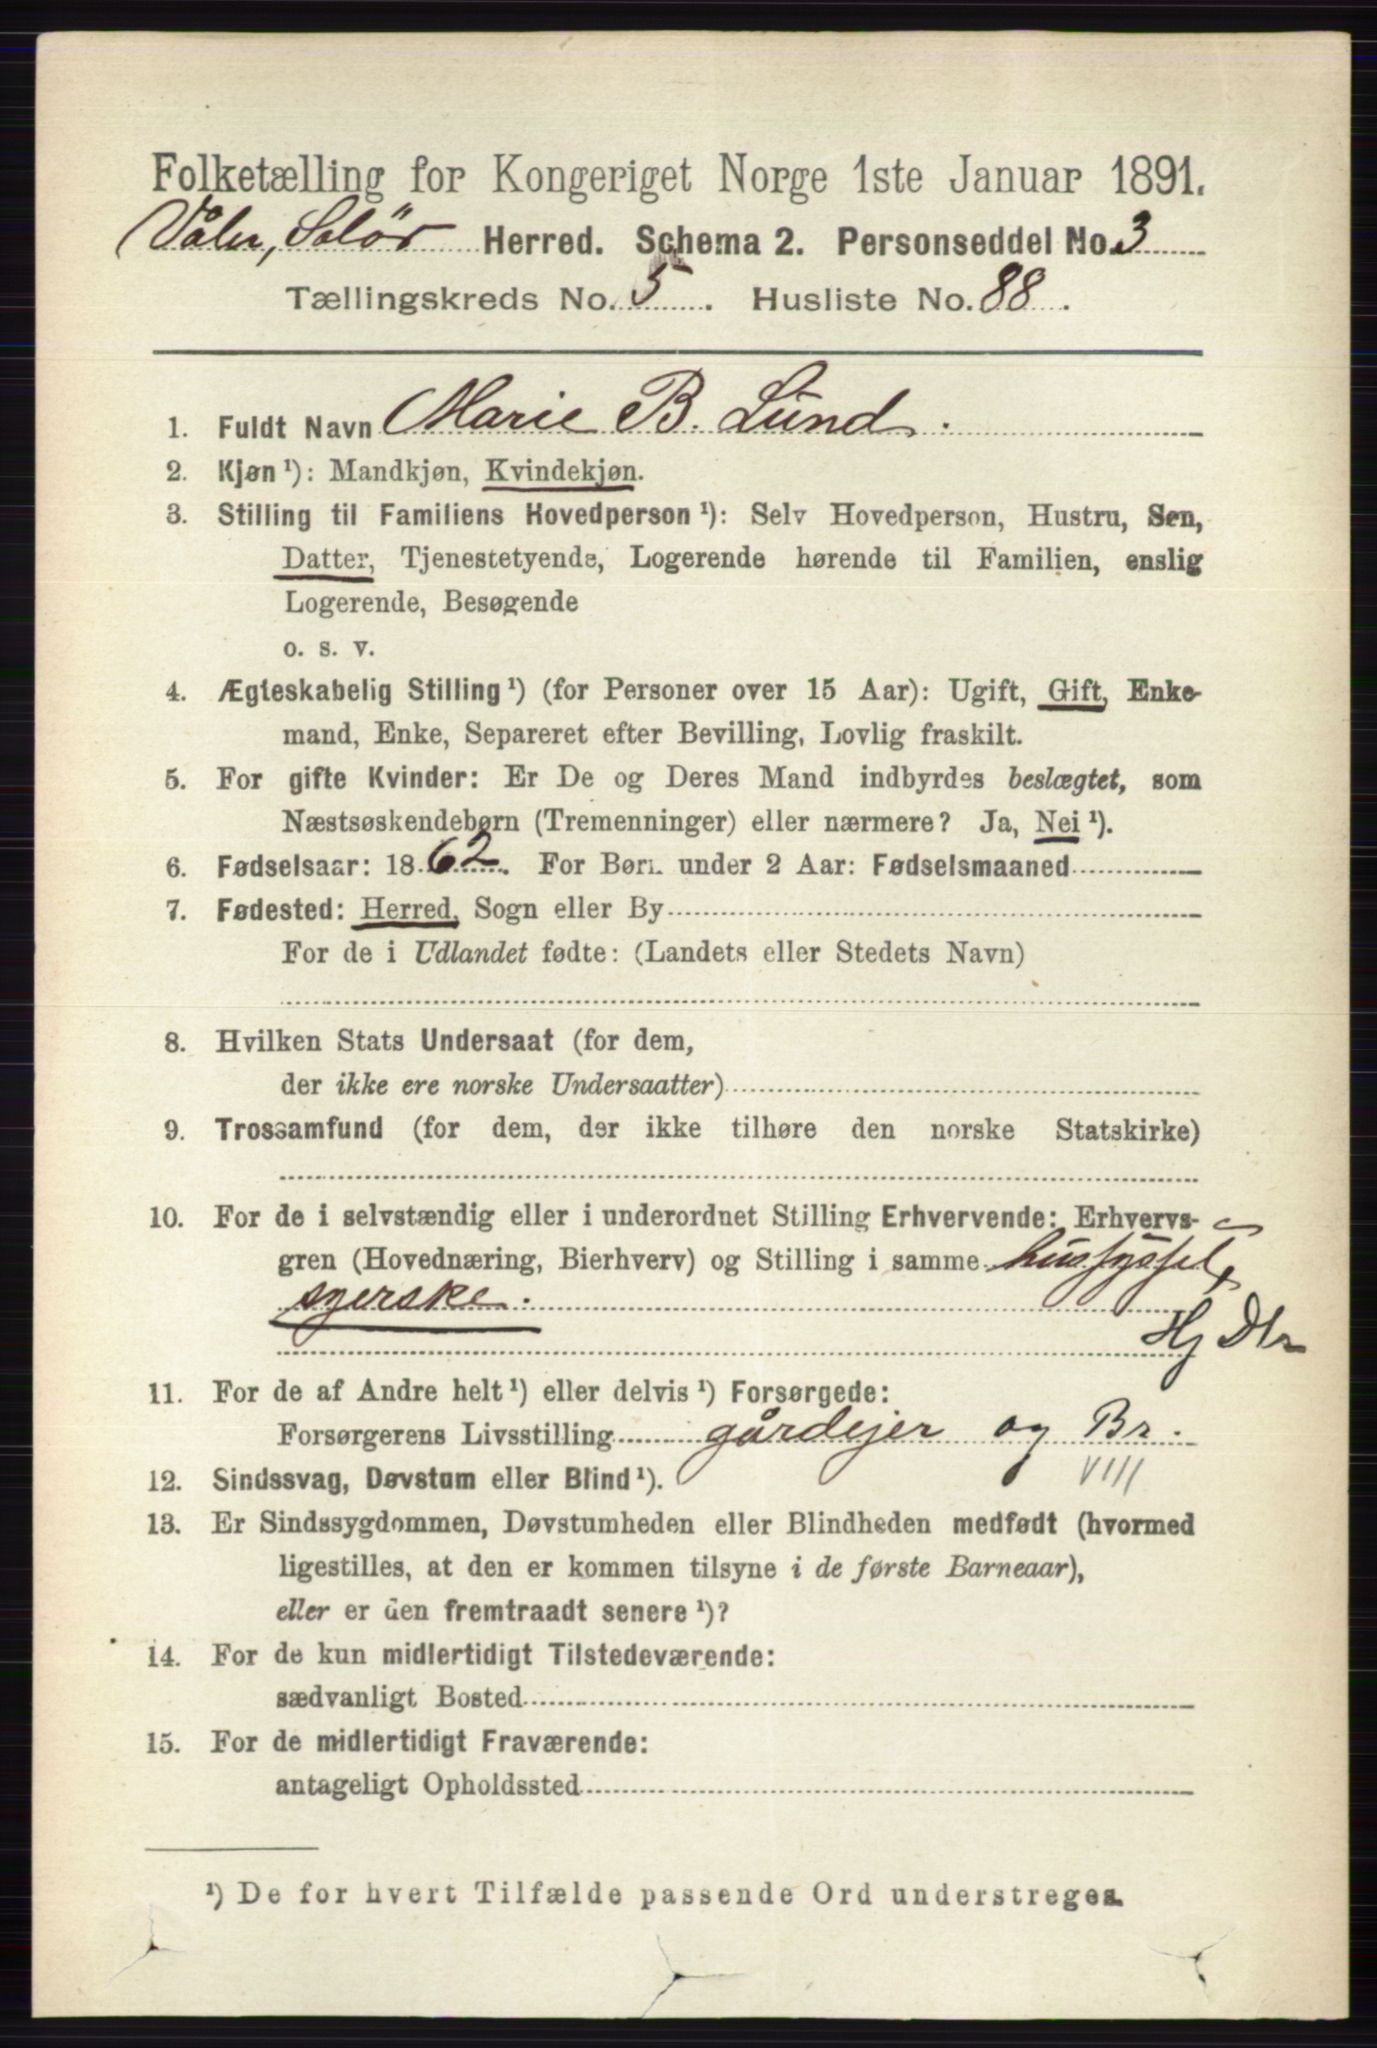 Folketælling for Kongeriget Norge 1ste Januar 1891.
Våler, Solør Herred. Schema 2. Personseddel No. 3
Tællingskreds No. 5. Husliste No. 88.
1. Fuldt Navn Marie B. Lund.
2. Kjøn ¹): Mandkjøn, Kvindekjøn.
3. Stilling til Familiens Hovedperson ¹): Selv Hovedperson, Hustru, Søn,
Datter, Tjenestetyende, Logerende hørende til Familien, enslig
Logerende, Besøgende
o. s. v.
4. Ægteskabelig Stilling ¹) (for Personer over 15 Aar): Ugift, Gift, Enke-
mand, Enke, Separeret efter Bevilling, Lovlig fraskilt.
5. For gifte Kvinder: Er De og Deres Mand indbyrdes beslægtet, som
Næstsøskendebørn (Tremenninger) eller nærmere? Ja, Nei ¹).
6. Fødselsaar: 1862. For Børn under 2 Aar: Fødselsmaaned
7. Fødested: Herred, Sogn eller By
For de i Udlandet fødte: (Landets eller Stedets Navn)
8. Hvilken Stats Undersaat (for dem,
der ikke ere norske Undersaatter)
9. Trossamfund (for dem, der ikke tilhøre den norske Statskirke)
10. For de i selvstændig eller i underordnet Stilling Erhvervende: Erhvervs-
gren (Hovednæring, Bierhverv) og Stilling i samme hussyssel,
syerske.
Hj Dtr
11. For de af Andre helt ¹) eller delvis ¹) Forsørgede:
Forsørgerens Livsstilling gårdejer og Br.
VIII
12. Sindssvag, Døvstum eller Blind ¹).
13. Er Sindssygdommen, Døvstumheden eller Blindheden medfødt (hvormed
ligestilles, at den er kommen tilsyne i de første Barneaar),
eller er den fremtraadt senere ¹)?
14. For de kun midlertidigt Tilstedeværende:
sædvanligt Bosted
15. For de midlertidigt Fraværende:
antageligt Opholdssted
¹) De for hvert Tilfælde passende Ord understreges.